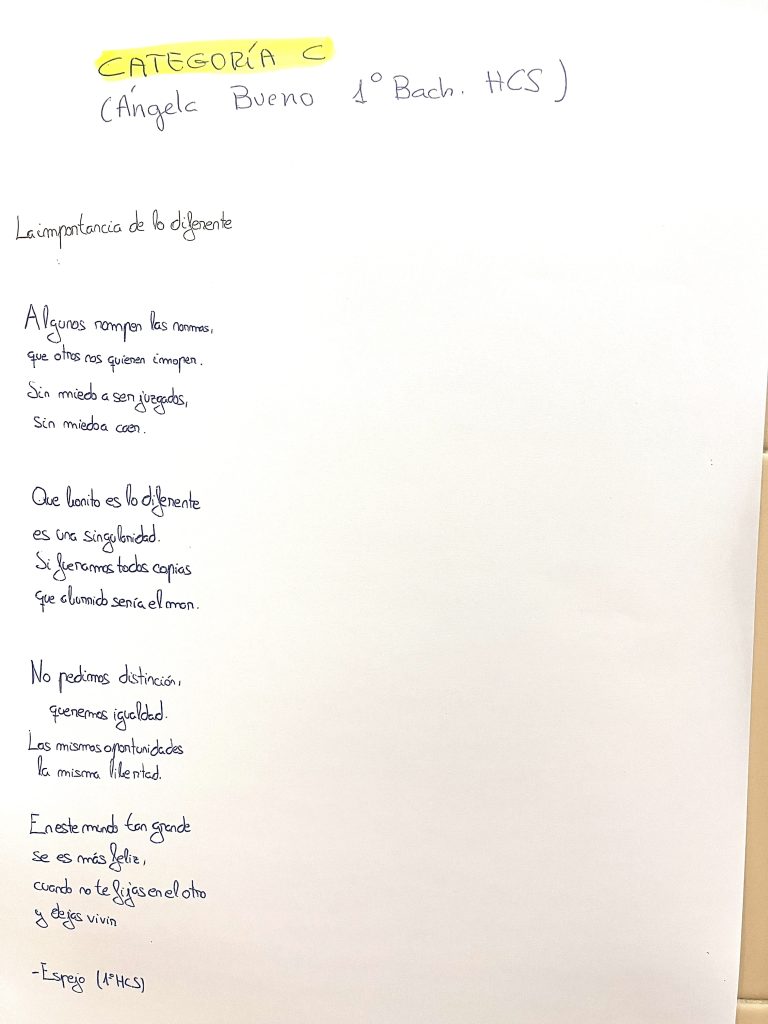 CATEGORÍA C
(Ángela Bueno 1º Bach. HCS)
La importancia de lo diferente
Algunos rompen las normas,
que otros nos quieren imponer.
Sin miedo a ser juzgados,
sin miedo a caer.
Que bonito es lo diferente
es una singularidad.
Si fueramos todos copias
que aburrido sería el mar.
No pedimos distinción,
queremos igualdad.
Las mismas oportunidades
la misma libertad.
En este mundo tan grande
se es más feliz,
cuando no te fijas en el otro
y dejas vivir
-Espejo (1º HCS)